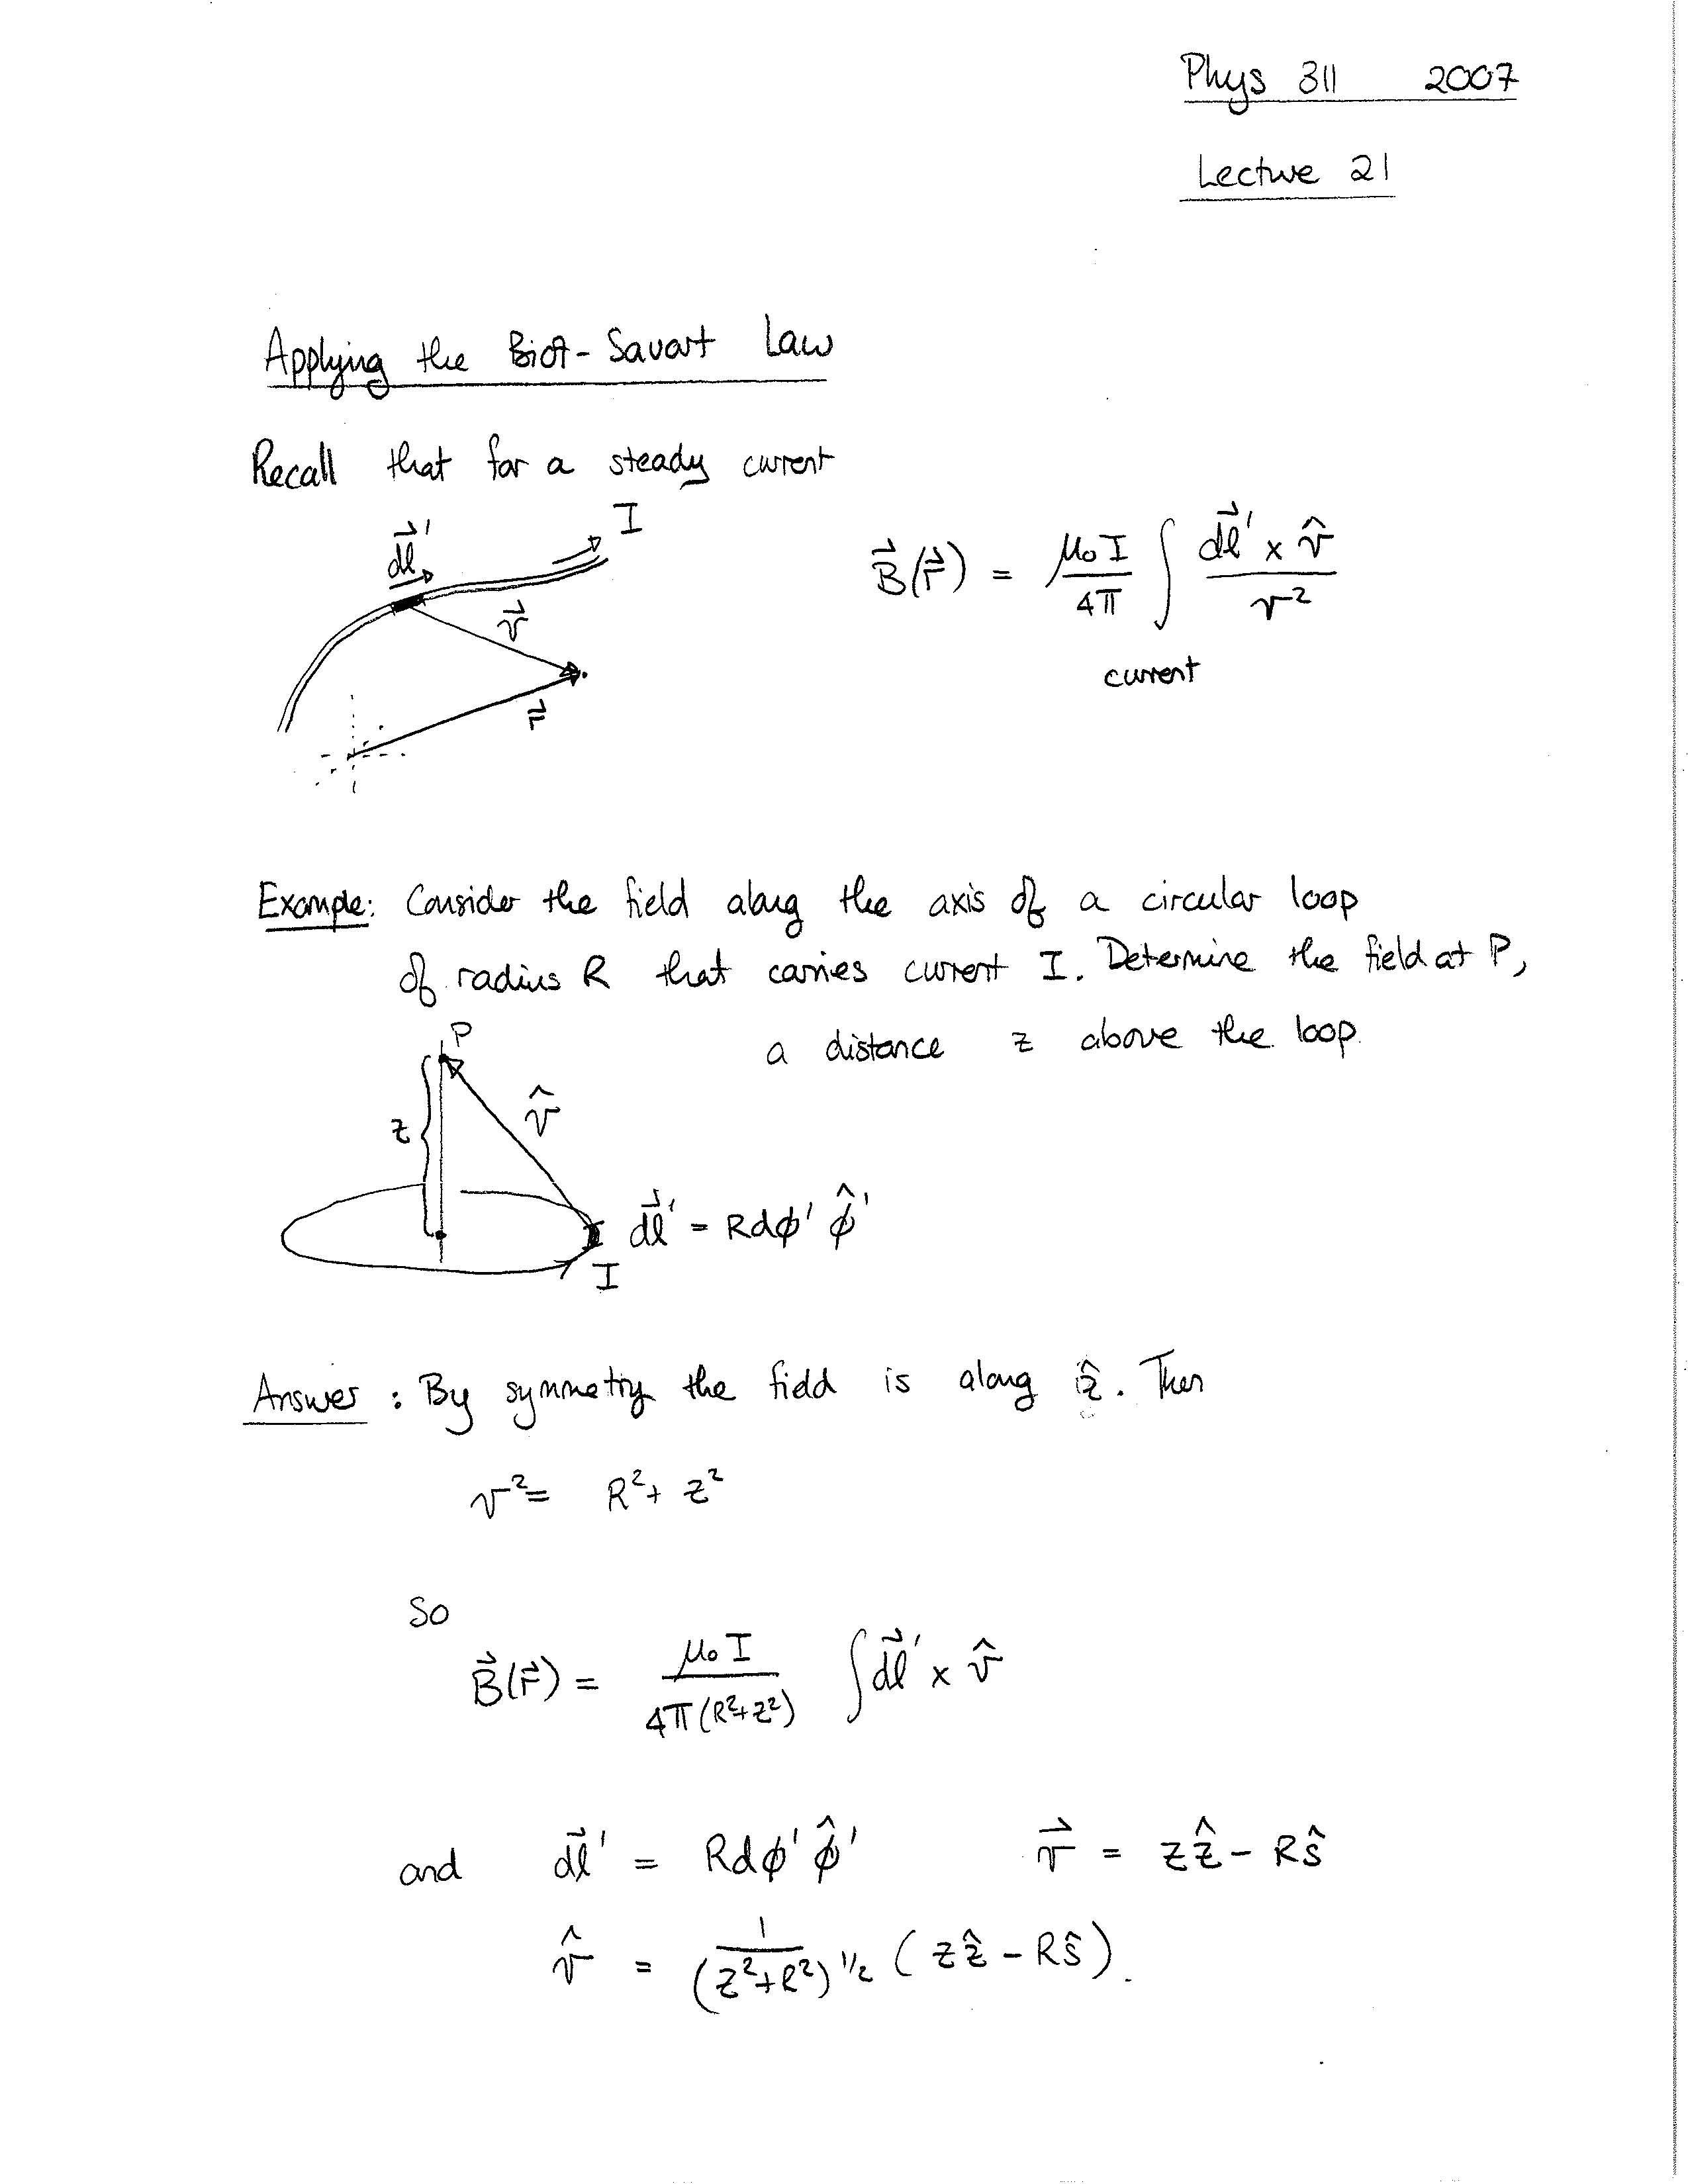 Phys 311 2007
Lecture 21
Applying the Biot-Savart Law
Recall that for a steady current
I
d\vec{l}'
\vec{r}
\vec{B}(\vec{r}) = \frac{\mu_0 I}{4\pi} \int \frac{d\vec{l}' \times \hat{r}}{r^2}
current
\vec{r}
Example: Consider the field along the axis of a circular loop
of radius R that carries current I. Determine the field at P,
a distance z above the loop.
P
\hat{r}
z
d\vec{l}' = R d\phi' \hat{\phi}'
I
Answer: By symmetry the field is along \hat{z}. Then
r^2 = R^2 + z^2
So
\vec{B}(\vec{r}) = \frac{\mu_0 I}{4\pi(R^2+z^2)} \int d\vec{l}' \times \hat{r}
and d\vec{l}' = R d\phi' \hat{\phi}' \vec{r} = z\hat{z} - R\hat{s}
\hat{r} = \frac{1}{(z^2+R^2)^{1/2}} (z\hat{z} - R\hat{s}).